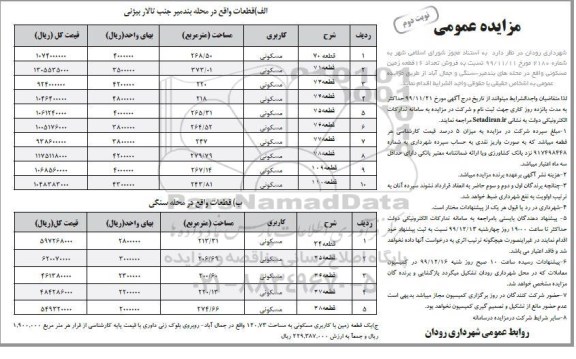 نوبت دوم
مزایده عمومی
شهرداری رودان در نظر دارد به استناد مجوز شورای اسلامی شهر به
شماره ۲۱۸۰ مورخ ۹۹/۱۱/۱۱ نسبت به فروش تعداد ۱۶ قطعه زمین
مسکونی واقع در محله های بندمیر-سنگی و جمال آباد از طریق مزایده
عمومی به اشخاص حقیقی یا حقوقی واجد الشرایط اقدام نماید.
لذا متقاضیان واجدالشرایط میتوانند از تاریخ درج آگهی مورخ ۹۹/۱۱/۲۱ حداکثر
به مدت پانزده روز کاری جهت ثبت نام و شرکت در مزایده به سامانه تدارکات
الکترونیکی دولت به نشانی Setadiran.ir مراجعه نمایند.
۱-مبلغ سپرده شرکت در مزایده به میزان ۵ درصد قیمت کارشناسی هر
قطعه میباشد که به صورت واریز نقدی به حساب سپرده شهرداری به شماره
۹۱۷۴۹۸۴۲۸ نزد بانک کشاورزی ویا ارائه ضمانتنامه معتبر بانکی دارای حداقل
سه ماه اعتبار میباشد.
۲-هزینه نشر آگهی برعهده برنده مزایده میباشد.
۳-چنانچه برندگان اول و دوم و سوم حاضر به انعقاد قرارداد نشوند سپرده آنان به
ترتیب اولویت به نفع شهرداری ضبط خواهد شد.
۴-شهرداری در رد یا قبول هر یک از پیشنهادات مختار است.
۵- پیشنهاد دهندگان بایستی بامراجعه به سامانه تدارکات الکترونیکی دولت
حداکثر تا ساعت ۱۹۰۰ روز چهارشنبه ۹۹/۱۲/۱۳ نسبت به ثبت پیشنهاد خود
اقدام نمایند در غیراینصورت هیچگونه ترتیب اثری به درخواست آنها داده نخواهد
شد و فاقد اعتبار می باشد.
۶-پیشنهادات رسیده ساعت ۱۰ صبح روز شنبه ۹۹/۱۲/۱۶ در کمیسیون
معاملات که در محل شهرداری رودان تشکیل میگردد بازگشایی و برنده گان
مزایده مشخص خواهد شد.
۷-حضور شرکت کنندگان در روز برگزاری کمیسیون مجاز میباشد بدیهی است
عدم حضور مانع از تشکیل و تصمیم گیری کمیسیون نخواهد بود.
۸-سایر شرایط شرکت درمزایده درسامانه
روابط عمومی شهرداری رودان
الف)قطعات واقع در محله بندمیر جنب تالار بیژنی
ردیف شرح کاربری مساحت (مترمربع) بهای واحد(ریال) قیمت کل (ریال)
۱ قطعه ۷۰ مسکونی ۲۶۸/۵۰ ۴۰۰۰۰۰۰ ۱۰۷۴۰۰۰۰۰۰
۲ قطعه۷۱ مسکونی ۳۷۳/۰۱ ۳۵۰۰۰۰۰ ۱۳۰۵۵۳۵۰۰۰
۳ مسکونی ۲۲۰ ۴۲۰۰۰۰۰ ۹۲۴۰۰۰۰۰۰
۴ مسکونی ۲۱۸ ۴۸۰۰۰۰۰ ۱۰۴۶۴۰۰۰۰۰
۵ قطعه۷۵ مسکونی ۲۶۵/۳۱ ۴۰۰۰۰۰۰ ۱۰۶۱۲۴۰۰۰۰
۶ قطعه۷۶ مسکونی ۲۶۴/۵۲ ۳۸۰۰۰۰۰ ۱۰۰۵۱۷۶۰۰۰
۷ قطعه۷۷ مسکونی ۲۴۷ ۳۸۰۰۰۰۰ ۹۳۸۶۰۰۰۰۰
۸ قطعه۷۸ مسکونی ۲۷۹/۷۹ ۴۲۰۰۰۰۰ ۱۱۷۵۱۱۸۰۰۰
۹ قطعه۱۰۹ مسکونی ۲۶۷/۱۴ ۴۰۰۰۰۰۰ ۱۰۶۸۵۶۰۰۰۰
۱۰ قطعه۱۱۰ مسکونی ۲۴۳/۸۱ ۴۳۰۰۰۰۰ ۱۰۴۸۳۸۳۰۰۰
ب) قطعات واقع در محله سنگی
ردیف شرح کاربری مساحت (مترمربع) بهای واحد(ریال) قیمت کل(ریال)
۱ قطعه۲۴ مسکونی ۲۱۳/۳۱ ۲۸۰۰۰۰۰ ۵۹۷۲۶۸۰۰۰
۲ مسکونی ۲۰۶/۶۹ ۳۰۰۰۰۰۰ ۶۲۰۰۷۰۰۰۰
۳ مسکونی ۲۰۰/۶۰ ۲۳۰۰۰۰۰ ۴۶۱۳۸۰۰۰۰
۴ قطعه۳۷ مسکونی ۲۲۰/۱۳ ۲۲۰۰۰۰۰ ۴۸۴۲۸۶۰۰۰
۵ قطعه۳۸ مسکونی ۲۷۴/۶۶ ۲۰۰۰۰۰۰ ۵۴۹۳۲۰۰۰۰
ج)یک قطعه زمین با کاربری مسکونی به مساحت ۱۲۰.۷۳ واقع در جمال آباد- روبروی بلوک زنی داوری با قیمت پایه کارشناسی از قرار هر متر مربع ۱,۹۰۰,۰۰۰
ریال و جمعا به ارزش ۲۲۹,۳۸۷,۰۰۰ ریال